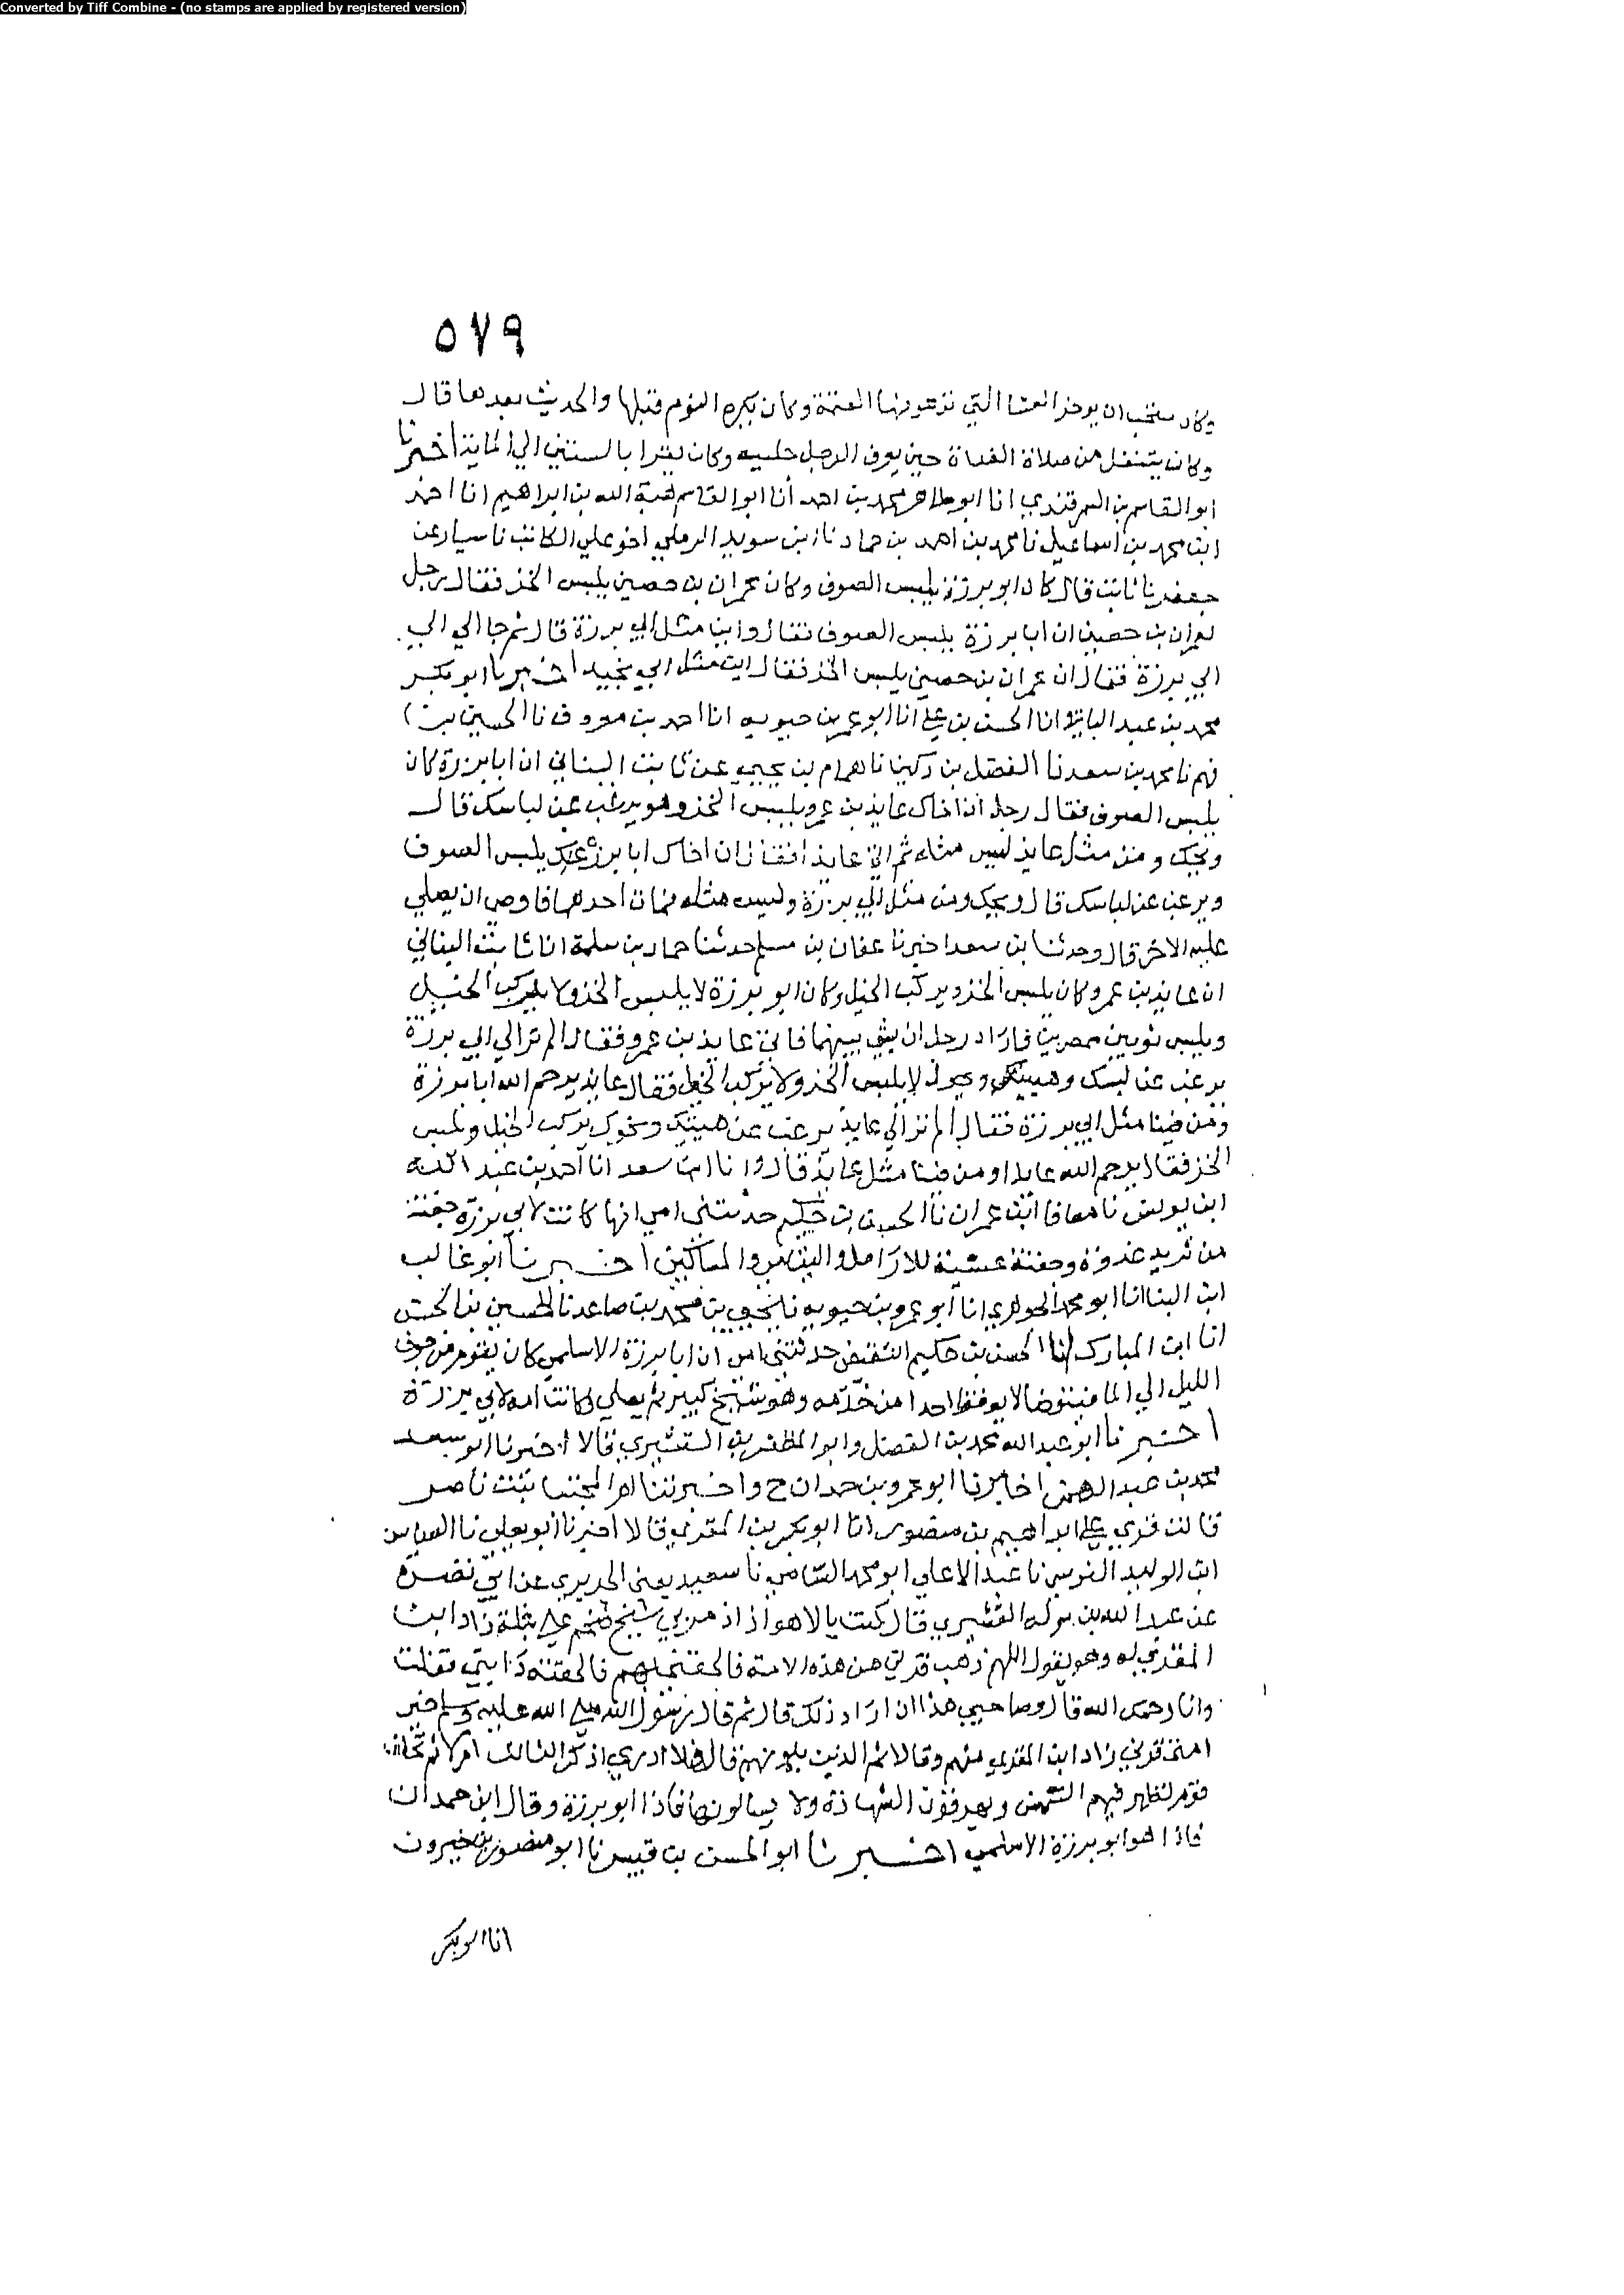 Converted by Tiff Combine - (no stamps are applied by registered version)
٥٧٩
وكان يستحب ان يوخر العشا التي تدعونها العتمة وكان يكره النوم قبلها والحديث بعدها قال
وكان ينفتل من صلاة الغداة حين يعرف الرجل جليسه وكان يقرا بالستين الي الماية اخبرنا
ابو القاسم بن السمرقندي انا ابو طاهر محمد بن احمد أنا ابو القاسم هبة الله بن ابراهيم انا احمد
ابن محمد بن اسماعيل نا محمد بن احمد بن حماد نا ابن سويد الرملي اخو علي الكاتب نا سيار عن
جعفر نا ثابت قال كان ابو برزة يلبس الصوف وكان عمران بن حصين يلبس الخز فقال رجل
لعمران بن حصين ان ابا برزة يلبس الصوف فقال واين مثل ابي برزة قال ثم جا الي ابي
ابي برزة فقال ان عمران بن حصين يلبس الخز فقال اين مثل ابي نجيد اخبرنا ابو بكر
محمد بن عبد الباقي انا الحسن بن علي انا ابو عمر بن حيويه انا احمد بن معروف نا الحسين بن
فهم نا محمد بن سعد نا الفضل بن دكين نا همام بن يحيي عن ثابت البناني ان ابا برزة كان
يلبس الصوف فقال رجل ان اخاك عايذ بن عمرو يلبس الخز وهو يرغب عن لباسك قال
ويحك ومن مثل عايذ ليس مثله ثم اتي عايذا فقال ان اخاك ابا برزة يلبس الصوف
ويرغب عن لباسك قال ويحك ومن مثل ابي برزة وليس مثله فمات احدهما فاوصي ان يصلي
عليه الاخر قال وحدثنا بن سعد اخبرنا عفان بن مسلم حدثنا حماد بن سلمة انا ثابت البناني
ان عايذ بن عمرو كان يلبس الخز ويركب الخيل وكان ابو برزة لا يلبس الخز ولا يركب الخيل
ويلبس ثوبين ممصرين فاراد رجل ان يشي بينهما فاتي عايذ بن عمرو فقال الم تر الي ابي برزة
يرغب عن لبسك وهييتك ونحوك لا يلبس الخز ولا يركب الخيل فقال عايذ يرحم الله ابا برزة
ومن فينا مثل ابي برزة فقال الم تر الي عايذ يرغب عن هييتك ونحوك يركب الخيل ويلبس
الخز فقال يرحم الله عايذا ومن فينا مثل عايذ قال وانا ابن سعد انا احمد بن عبد الله
ابن يونس نا معافا ابن عمران نا الحسن بن حكيم حدثتني امي انها كانت لابي برزة جفنة
من ثريد غدوة وجفنة عشية للارامل واليتامي والمساكين اخبرنا ابو غالب
ابن البنا انا ابو محمد الجوهري انا ابو عمرو بن حيويه نا يحيي بن محمد بن صاعد نا الحسين بن الحسن
انا ابن المبارك انا الحسن بن حكيم الثقفي حدثتني امي ان ابا برزة الاسلمي كان يقوم من جوف
الليل الي الما فيتوضا لا يوقظ احدا من خدمه وهو شيخ كبير ثم يصلي وكانت امة لابي برزة
اخبرنا ابو عبد الله محمد بن الفضل وابو المظفر بن القشيري قالا اخبرنا ابو سعد
محمد بن عبد الرحمن اخبرنا ابو عمرو بن حمدان ح واخبرتنا ام المجتبا بنت ناصر
قالت قري علي ابراهيم بن منصور انا ابو بكر بن المقري قالا اخبرنا ابو يعلي نا العباس
ابن الوليد النرسي نا عبد الاعلي ابو محمد الشامي نا سعيد يعني الجريري عن ابي نضرة
عن عبد الله بن موله القشيري قال كنت بالاهواز اذ مر بي شيخ ضخم علي بغلة زاد ابن
المقري له وهو يقول اللهم ذهب قرني من هذه الامة فالحقني بهم فالحقته دابتي فقلت
وانا رحمك الله قال وصاحبي هذا ان اراد ذلك قال ثم قال رسول الله صلى الله عليه وسلم خير
امتي قرني زاد ابن المقري منهم وقالا ثم الذين يلونهم قال فلا ادري اذكر الثالث ام لا ثم
قوم تظهر فيهم السمن ويهرقون الشهادة ولا يسالونها فاذا ابو برزة وقال ابن حمدان
فاذا هو ابو برزة الاسلمي اخبرنا ابو الحسن بن قبيس نا ابو منصور بن خيرون
انا ابو بكر